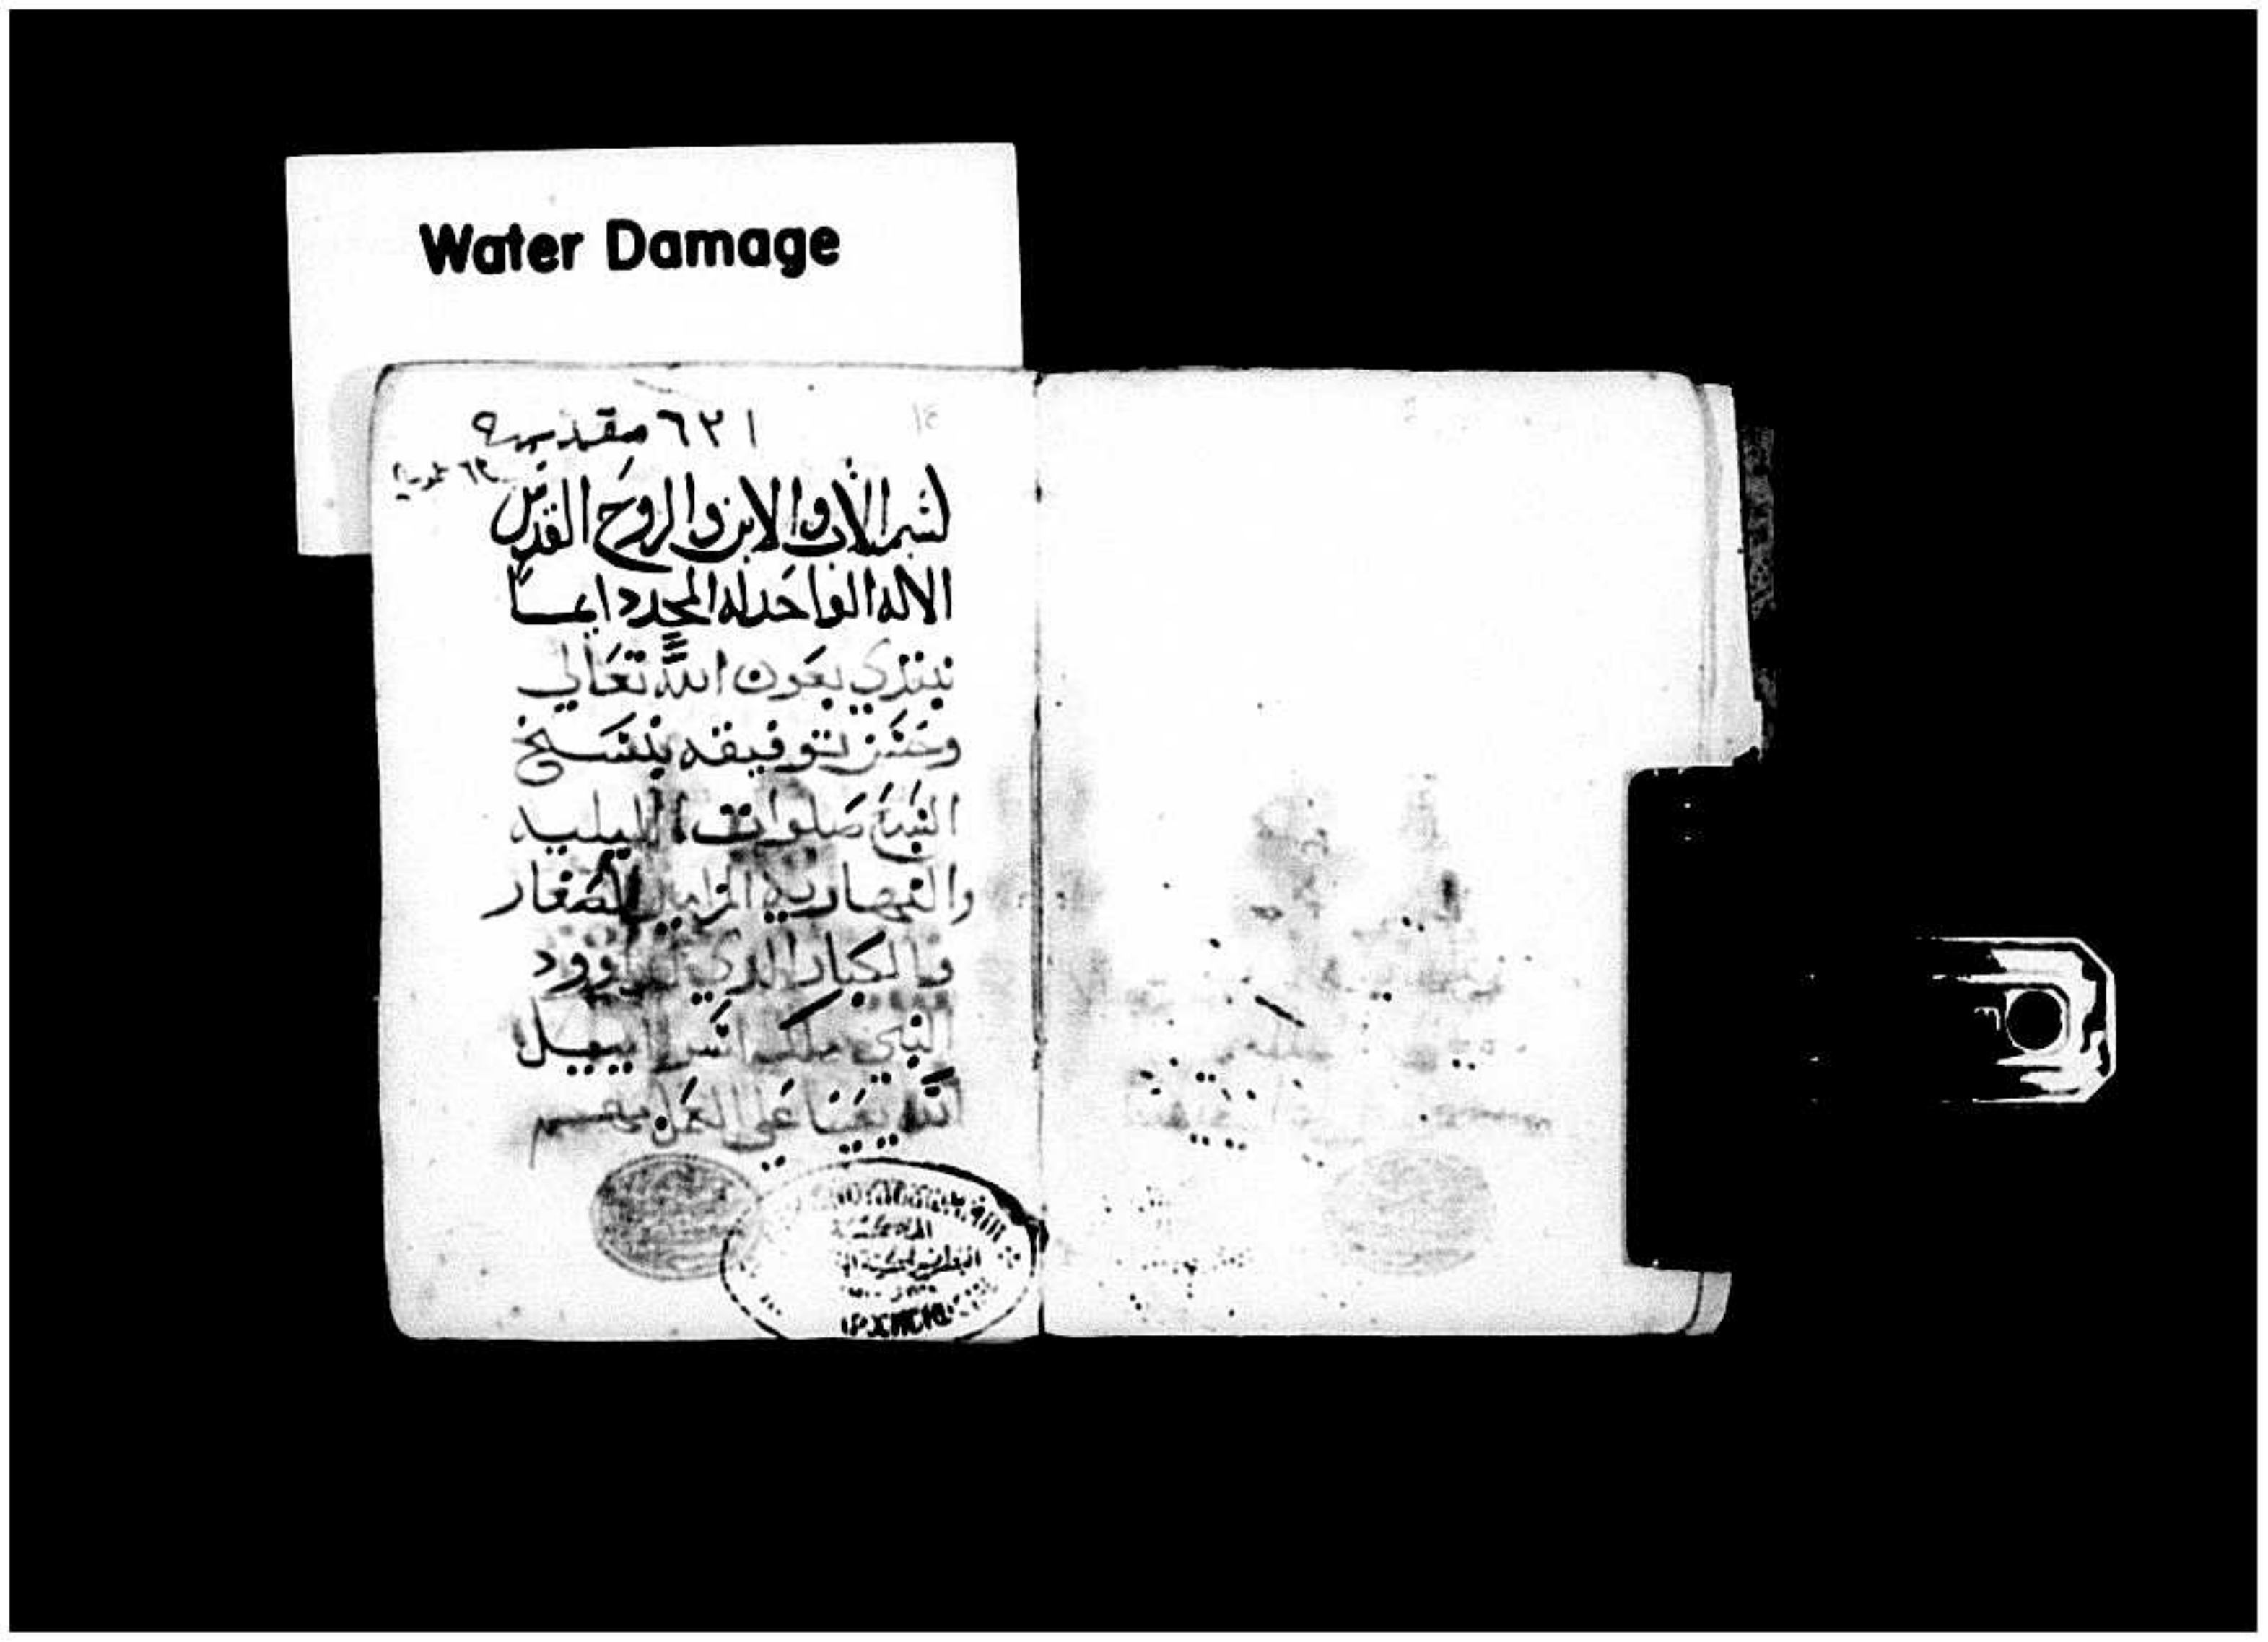 Water Damage
٦٢١ مقدسه
لسم الاب والابن والروح القدس
الاله الواحد له المجد دايما
نبتدي بعون الله تعالي
وحسن توفيقه بنسخ
السبع صلوات الليليه
والنهاريه المزامير الصغار
والكبار الذي لداوود
النبي ملك اسراييل
الله يعيننا علي العمل بهم